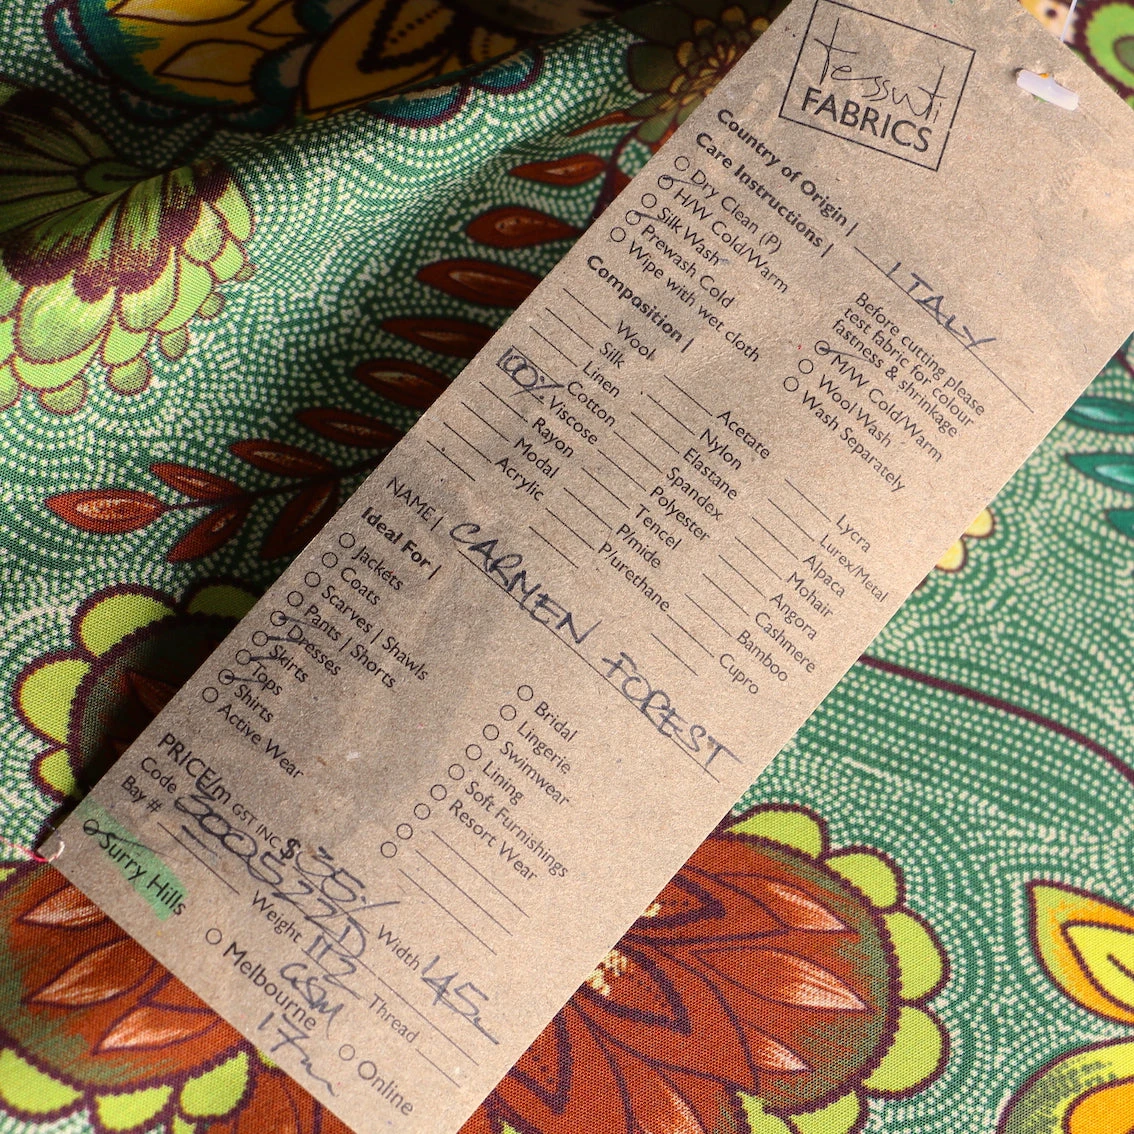 tessuti
FABRICS
Country of Origin | ITALY
Care Instructions |
Dry Clean (P)
H/W Cold/Warm
Silk Wash
Prewash Cold
Wipe with wet cloth
Before cutting please
test fabric for colour
fastness & shrinkage
M/W Cold/Warm
Wool Wash
Wash Separately
Composition |
Wool
Silk
Linen
100% Cotton
Viscose
Rayon
Modal
Acrylic
Acetate
Nylon
Elastane
Spandex
Polyester
Tencel
P/mide
P/urethane
Lycra
Lurex/Metal
Alpaca
Mohair
Angora
Cashmere
Bamboo
Cupro
NAME | CARMEN FOREST
Ideal For |
Jackets
Coats
Scarves | Shawls
Pants | Shorts
Dresses
Skirts
Tops
Shirts
Active Wear
Bridal
Lingerie
Swimwear
Lining
Soft Furnishings
Resort Wear
PRICE/m GST INC $ 35
Code 300527D
Bay #
Weight 112 GSM
Width 145
Thread
Surry Hills
Melbourne
Online
17m